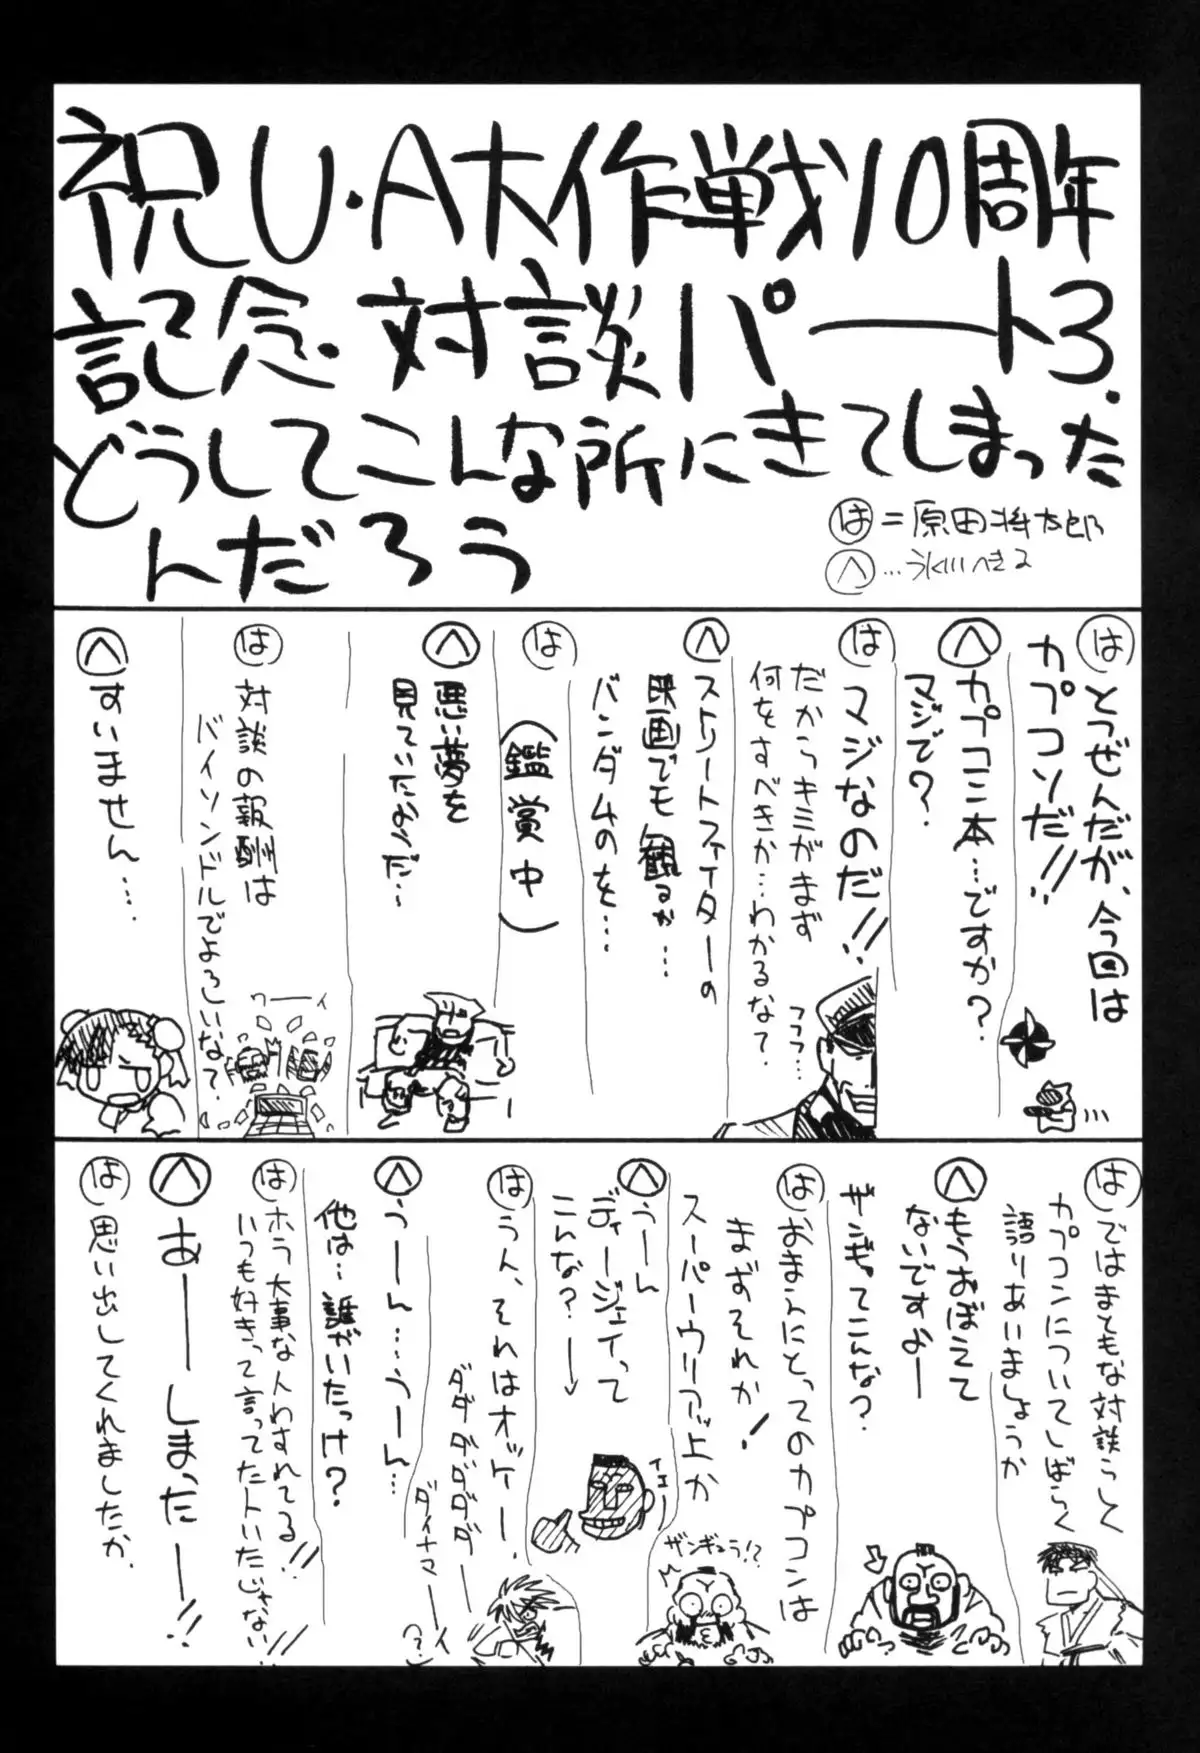 祝U・A大作戦10周年
記念・対談パート3.
どうしてこんな所にきてしまった
んだろう
は=原田将太郎
へ…氷川へきる
は とつぜんだが、今回は
カプコンだ!!
へ カプコン本…ですか?
マジで?
は マジなのだ!!
だからキミがまず
何をすべきか…わかるな?
フフフ…
へ ストリートファイターの
映画でも観るか…
バンダムのを…
は
(鑑賞中)
へ 悪い夢を
見ていたようだ…
は 対談の報酬は
バイソンドルでよろしいな?
ワーイ
へ すいません…
は ではまともな対談らしく
カプコンについてしばらく
語りあいましょうか
へ もうおぼえて
ないですよー
ザンギってこんな?
は おまえにとってのカプコンは
まずそれか!
スーパーウリアッ上か
ザンギュラ!?
へ うーん
ディージェイって
こんな?→
イエー
は うん、それはオッケー.
ダダダダダダー
ダイナマーイ
(?)
へ うーん…うーん…
他は…誰がいたっけ?
は ホラ大事な人わすれてる!!
いつも好きって言ってた人いたじゃない!!
へ あーーしまったーー!!
は 思い出してくれましたか.